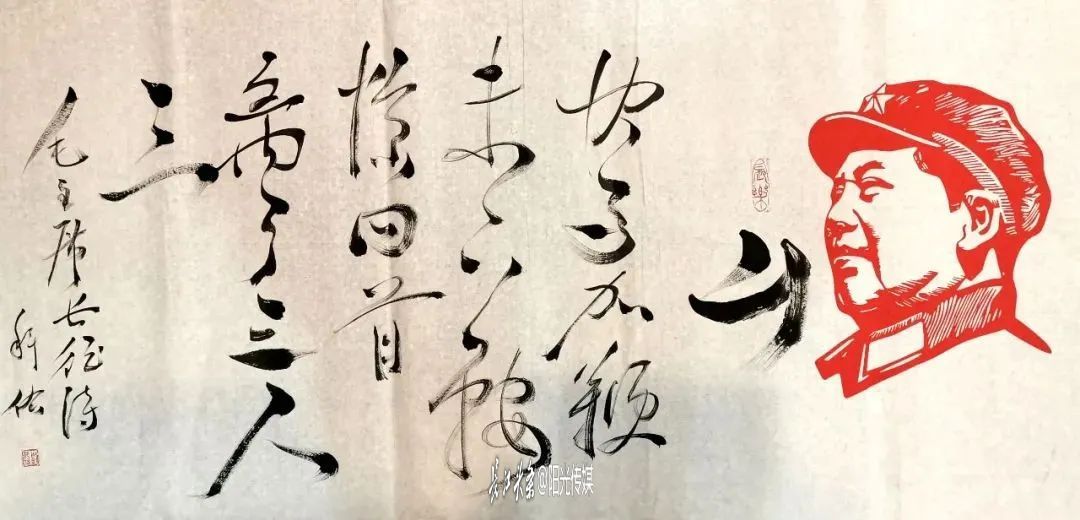 山
快马加鞭
未下鞍
惊回首
离天三尺
三
毛主席长征诗
長樂
@阳光传媒